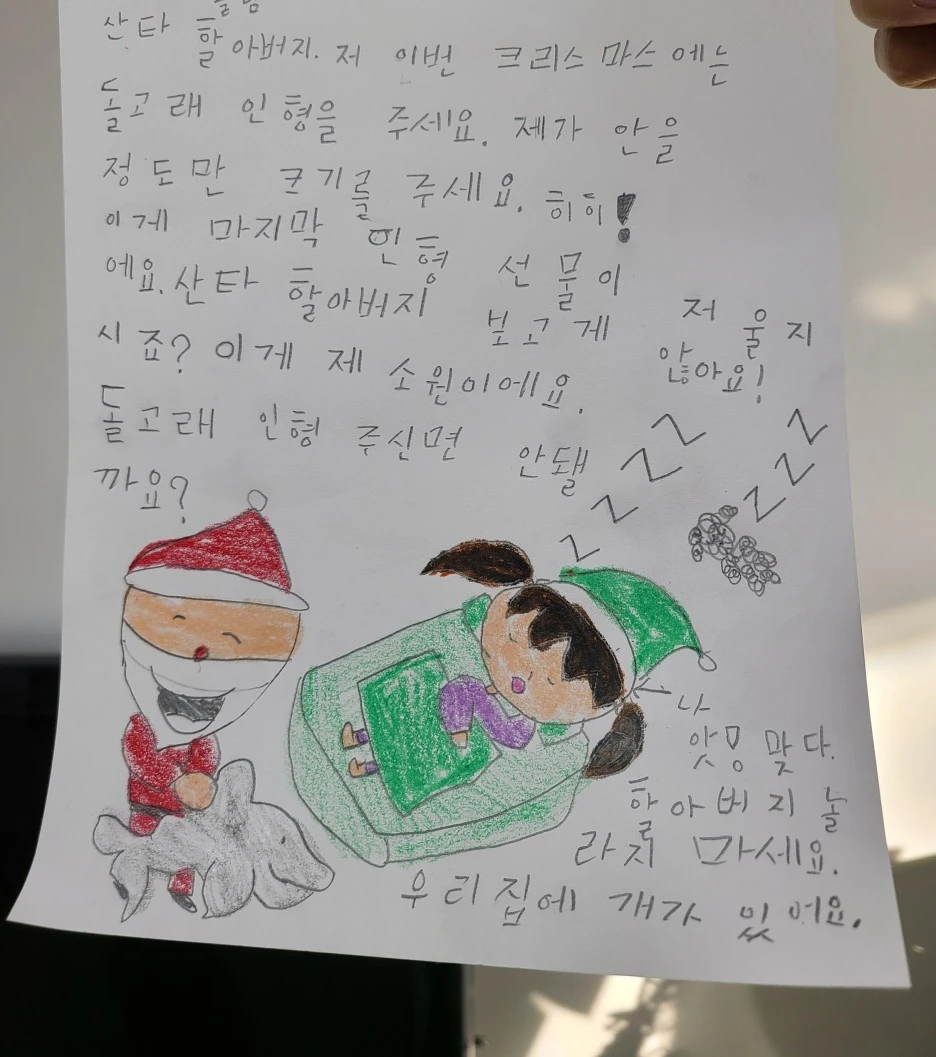 산타 할아버지. 저 이번 크리스마스에는
돌고래 인형을 주세요. 제가 안을
정도만 크기를 주세요. 히히!
이게 마지막 인형 선물이
에요. 산타 할아버지 보고 계
시죠? 이게 제 소원이에요.
저 울지
않아요!
돌고래 인형 주신면 안됄
까요?
z z z z z z z
나
앗 맞다.
할아버지 놀
라지 마세요.
우리집에 개가 있어요.